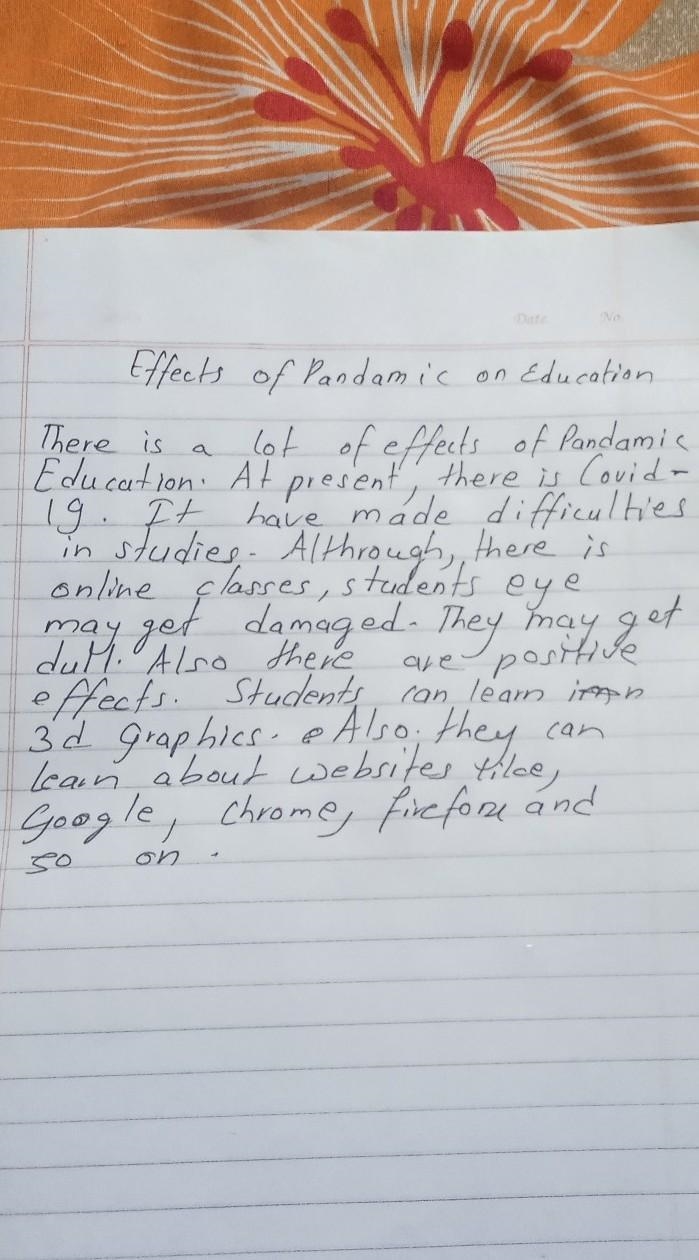 Date No.
Effects of Pandamic on Education
There is a lot of effects of Pandamic
Education. At present, there is Covid-
19. It have made difficulties
in studies. Althrough, there is
online classes, students eye
may get damaged. They may get
dull. Also there are positive
effects. Students can learn in
3d graphics. Also. they can
learn about websites like,
Google, Chrome, firefox and
so on.